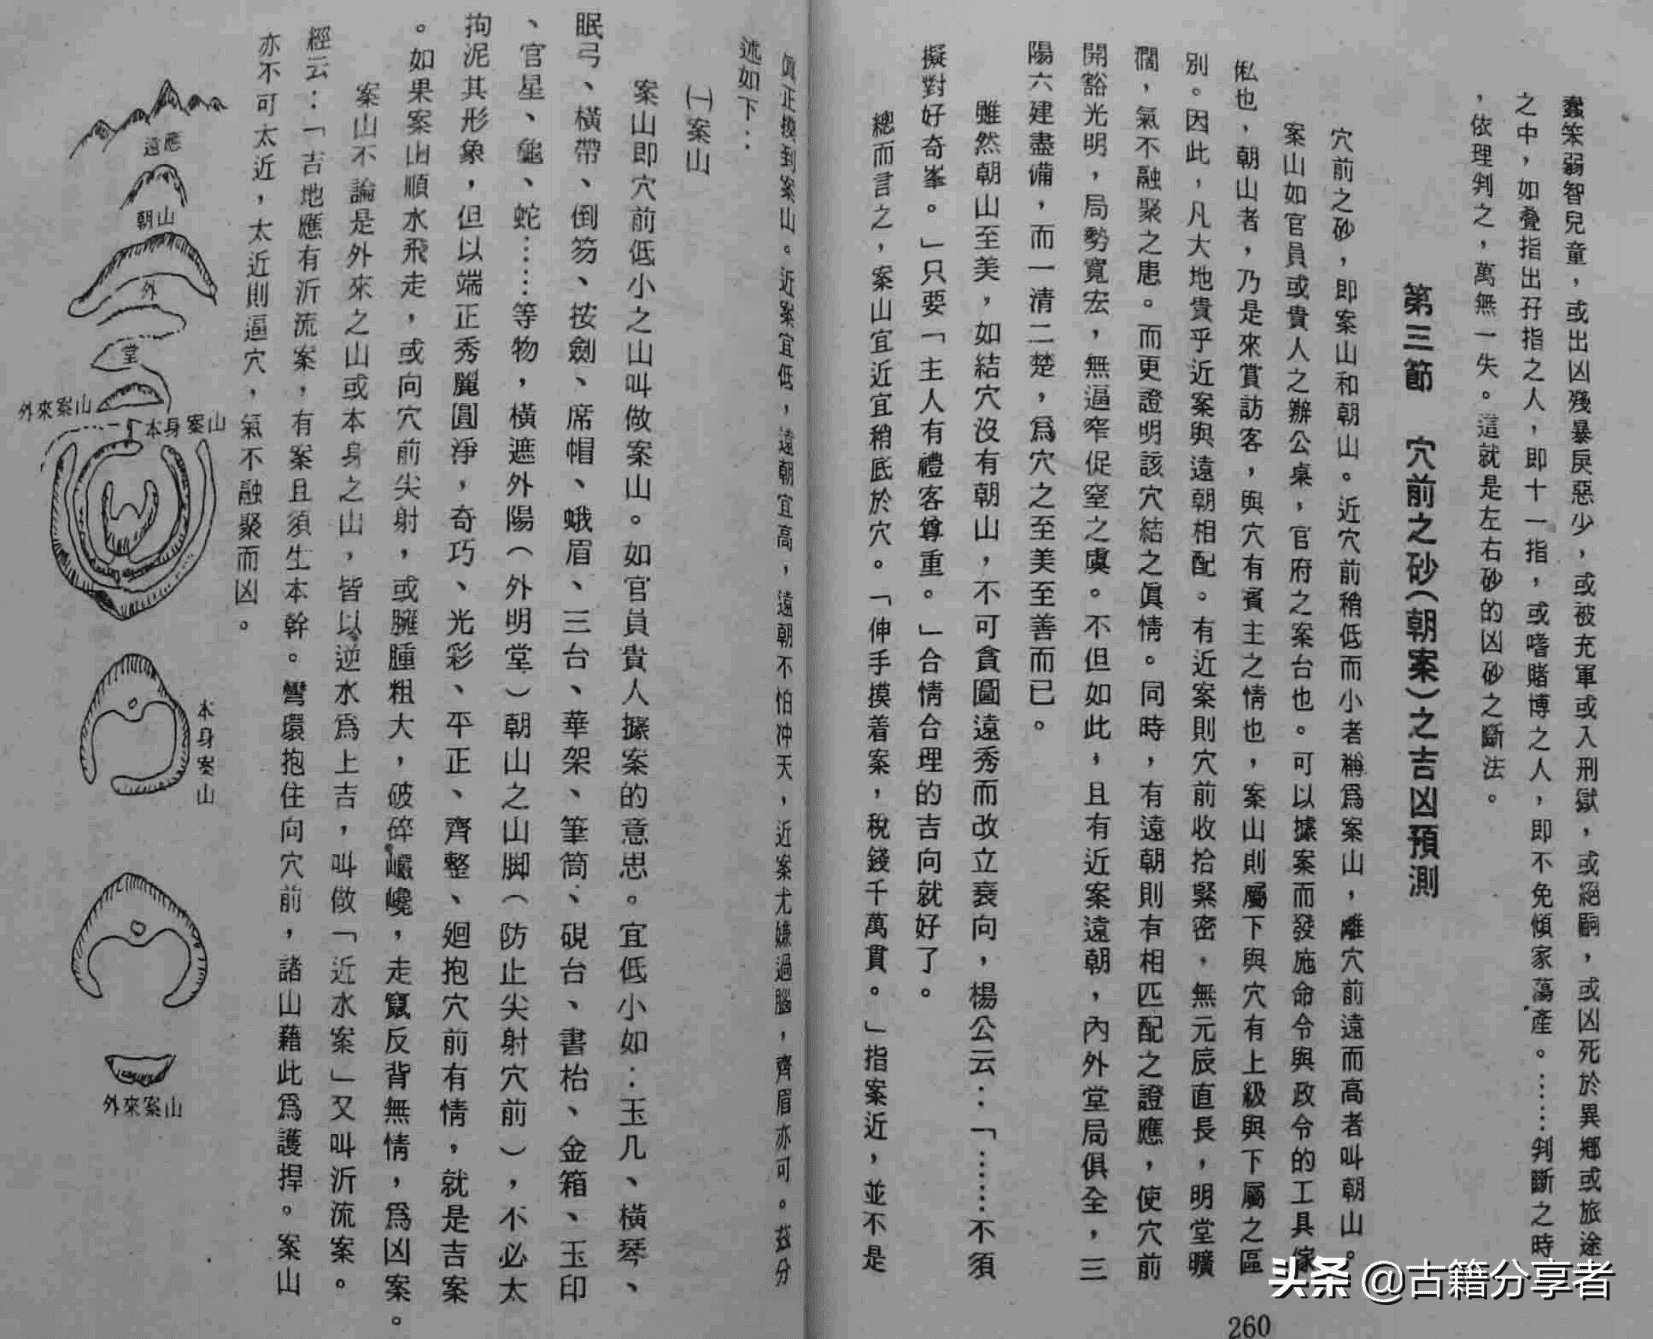 蠢笨弱智兒童，或出凶殘暴戾惡少，或被充軍或入刑獄，或絕嗣，或凶死於異鄉或旅途
之中，如叠指出孖指之人，即十一指，或嗜賭博之人，即不免傾家蕩產。……判斷之時
，依理判之，萬無一失。這就是左右砂的凶砂之斷法。
第三節　穴前之砂（朝案）之吉凶預測
穴前之砂，即案山和朝山。近穴前稍低而小者稱爲案山，離穴前遠而高者叫朝山。
案山如官員或貴人之辦公桌，官府之案台也。可以據案而發施命令與政令的工具傢
俬也，朝山者，乃是來賞訪客，與穴有賓主之情也，案山則屬下與穴有上級與下屬之區
別。因此，凡大地貴乎近案與遠朝相配。有近案則穴前收拾緊密，無元辰直長，明堂曠
濶，氣不融聚之患。而更證明該穴結之眞情。同時，有遠朝則有相匹配之證應，使穴前
開豁光明，局勢寬宏，無逼窄促窒之虞。不但如此，且有近案遠朝，內外堂局俱全，三
陽六建盡備，而一清二楚，爲穴之至美至善而已。
雖然朝山至美，如結穴沒有朝山，不可貪圖遠秀而改立衰向，楊公云：「……不須
擬對好奇峯。」只要「主人有禮客尊重。」合情合理的吉向就好了。
總而言之，案山宜近宜稍底於穴。「伸手摸着案，稅錢千萬貫。」指案近，並不是
眞正摸到案山。近案宜低，遠朝宜高，遠朝不怕冲天，近案尤嫌過腦，齊眉亦可。茲分
述如下：
㈠案山
案山即穴前低小之山叫做案山。如官員貴人據案的意思。宜低小如：玉几、橫琴、
眠弓、橫帶、倒笏、按劍、席帽、蛾眉、三台、華架、筆筒、硯台、書枱、金箱、玉印
、官星、龜、蛇……等物，橫遮外陽（外明堂）朝山之山脚（防止尖射穴前），不必太
拘泥其形象，但以端正秀麗圓淨，奇巧、光彩、平正、齊整、廻抱穴前有情，就是吉案
。如果案山順水飛走，或向穴前尖射，或臃腫粗大，破碎巉巉，走竄反背無情，爲凶案。
案山不論是外來之山或本身之山，皆以逆水爲上吉，叫做「近水案」又叫泝流案。
經云：「吉地應有泝流案，有案且須生本幹。彎環抱住向穴前，諸山藉此爲護捍。案山
亦不可太近，太近則逼穴，氣不融聚而凶。
遠應
朝山
外
堂
外來案山
本身案山
本身案山
外來案山
260
头条 @古籍分享者